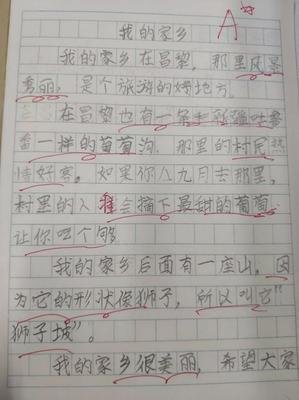 我的家乡 A
我的家乡在昌黎，那里风景
秀丽，是个旅游的好地方。
在昌黎也有一条手新疆吐鲁
番一样的葡萄沟，那里的村民热
情好客。如果你八九月去那里，
村里的人准会摘下最甜的葡萄
让你吃个够
我的家乡后面有一座山，因
为它的形状像狮子，所以叫它“
狮子
我的家乡很美丽，希望大家